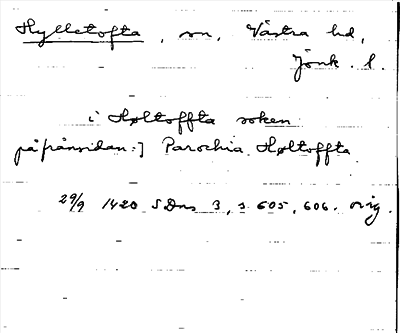 Hylletofta, sn, Västra hd,
Jönk. l.
i Høltoffta soken
påfrånsidan:] Parochia Høltoffta
29/9 1420 SDns 3, s 605, 606. orig.